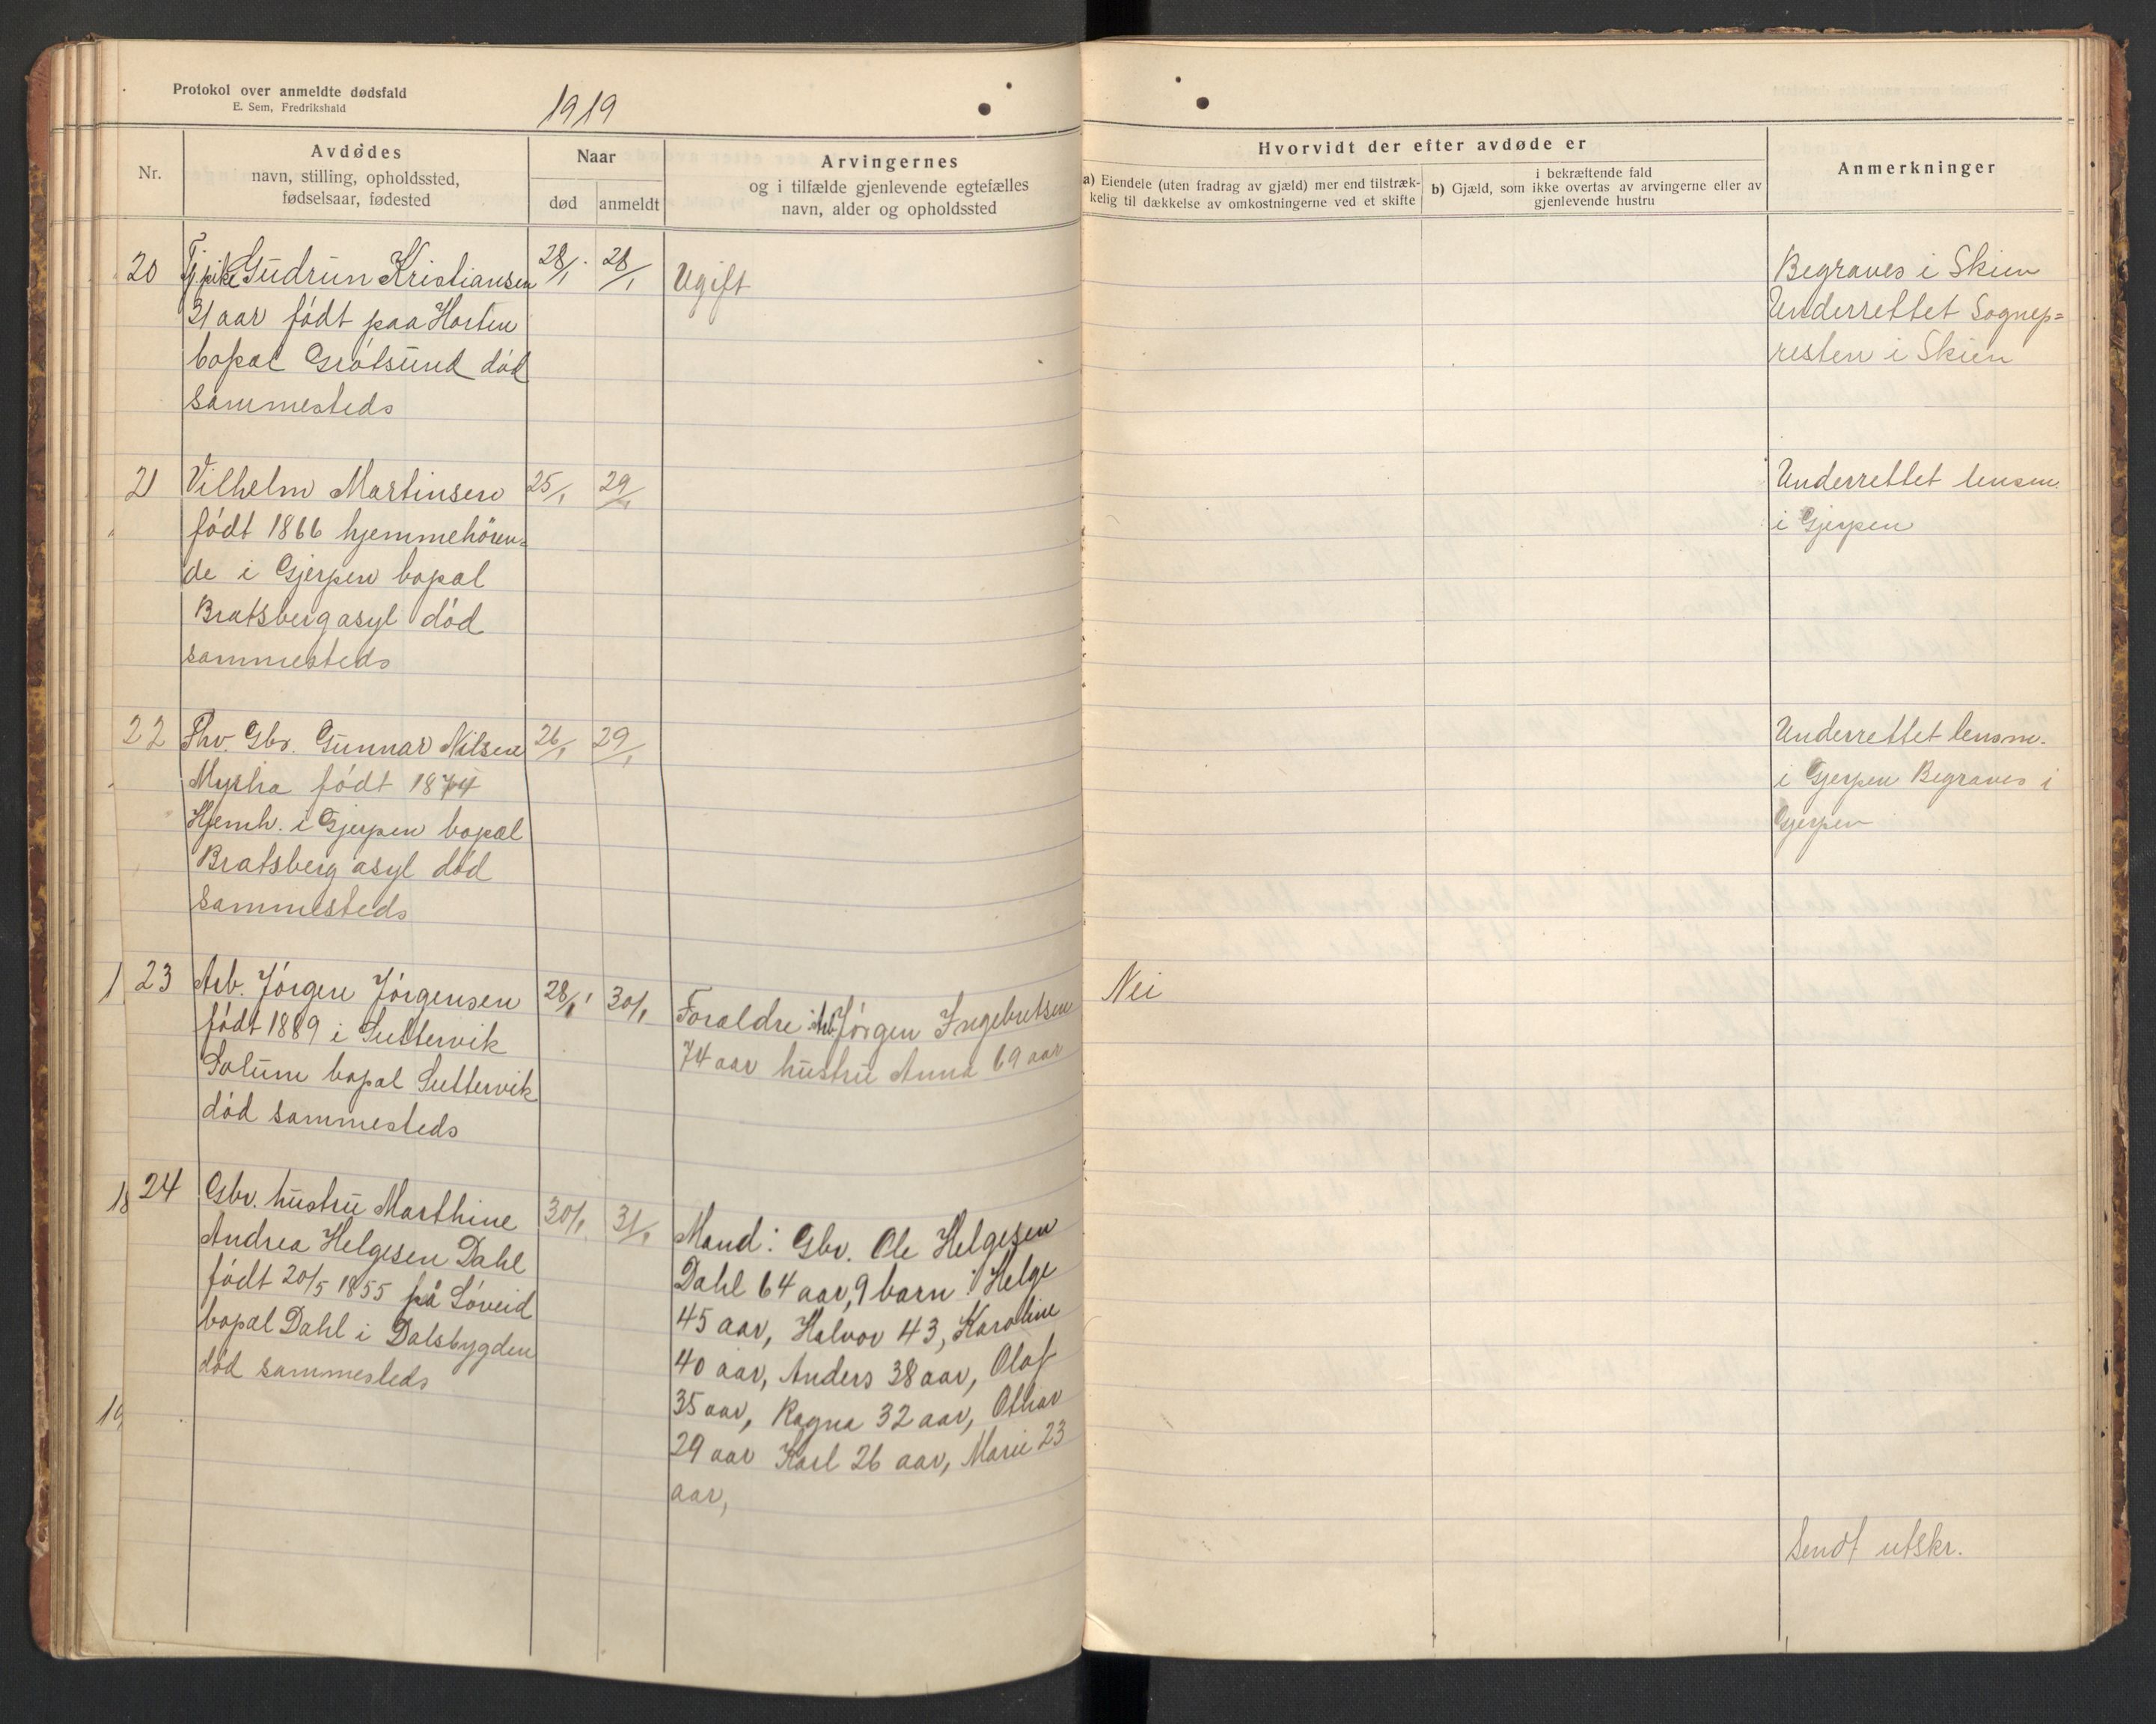 Protokol over anmeldte dødsfald
E. Sem, Fredrikshald
1919
Nr.
Avdødes
navn, stilling, opholdssted,
fødselsaar, fødested
Naar
død
anmeldt
Arvingernes
og i tilfælde gjenlevende egtefælles
navn, alder og opholdssted
Hvorvidt der efter avdøde er
a) Eiendele (uten fradrag av gjæld) mer end tilstræk-
kelig til dækkelse av omkostningerne ved et skifte
i bekræftende fald
b) Gjæld, som ikke overtas av arvingerne eller av
gjenlevende hustru
Anmerkninger
20 Tj.pike Gudrun Kristiansen 28/1 28/1 Ugift
31 aar födt paa Horten
bopæl Grótsund död
sammesteds
Begraves i Skien
Underrettet Sognep=
resten i Skien
21 Vilhelm Martinsen 25/1 29/1
födt 1866 hjemmehören=
de i Gjerpen bopæl
Bratsberg asyl död
sammesteds
Underrettet lensm.
i Gjerpen
22 Fhv. Gbr. Gunnar Nilsen 26/1 29/1
födt 1874
Hjemh. i Gjerpen bopæl
Bratsberg asyl död
sammesteds
Underrettet lensm.
i Gjerpen Begraves i
Gjerpen
23 Arb. Jörgen Jörgensen 28/1 30/1
födt 1889 i
Solum bopæl
död sammesteds
Foraldre: Arb. Jörgen Ingebretsen
74 aar hustru Anna 69 aar
Nei
24 Gbr. hustru Marthine 30/1 31/1
Andrea Helgesen Dahl
födt 20/5 1855 på Löveid
bopæl Dahl i Dalsbygden
död sammesteds
Mand: Gbr. Ole Helgesen
Dahl 64 aar, 9 barn: Helge
45 aar, Halvor 43, Karoline
40 aar, Anders 38 aar, Olaf
35 aar, Ragna 32 aar, Othar
29 aar Karl 26 aar, Marie 23
aar,
Sendt utskr.